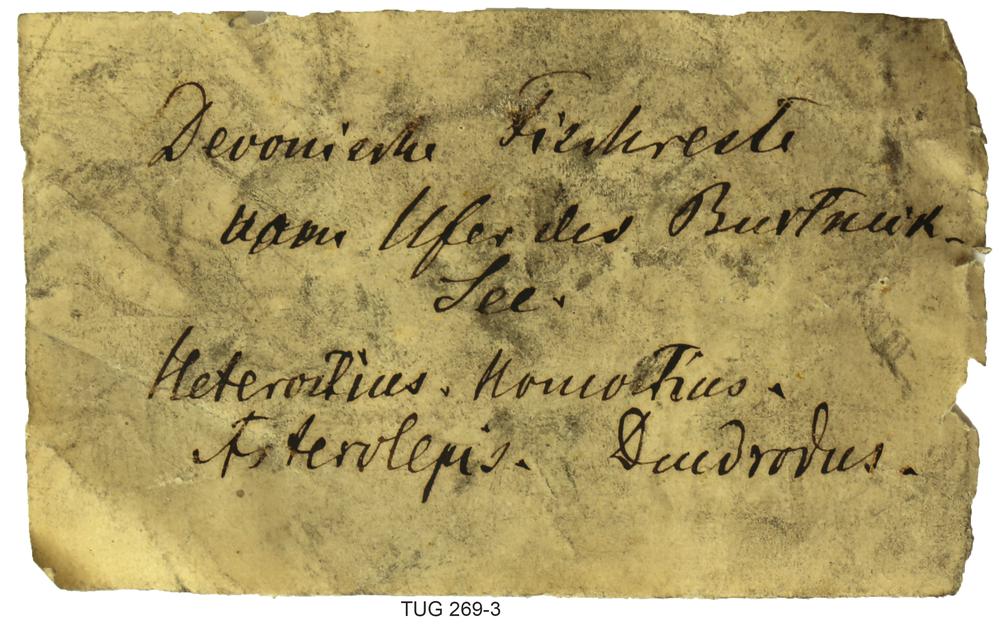 Devonische Fischreste
vom Ufer des Burtneck-
See.
Heterostius. Homostius.
Asterolepis. Dendrodus.
TUG 269-3